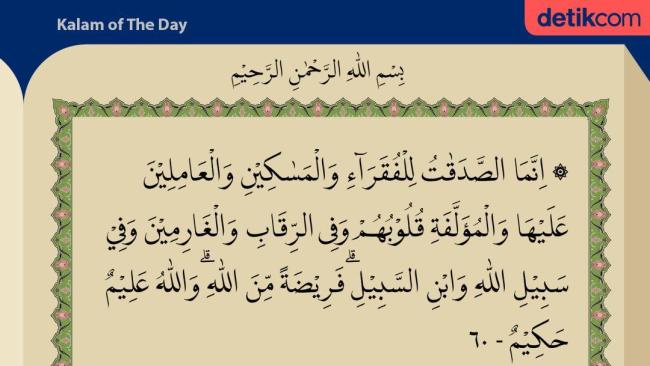 Kalam of The Day
detikcom
بِسْمِ اللّٰهِ الرَّحْمٰنِ الرَّحِيْمِ
۞ اِنَّمَا الصَّدَقٰتُ لِلْفُقَرَاۤءِ وَالْمَسٰكِيْنِ وَالْعَامِلِيْنَ
عَلَيْهَا وَالْمُؤَلَّفَةِ قُلُوْبُهُمْ وَفِى الرِّقَابِ وَالْغَارِمِيْنَ وَفِيْ
سَبِيْلِ اللّٰهِ وَابْنِ السَّبِيْلِۗ فَرِيْضَةً مِّنَ اللّٰهِ ۗوَاللّٰهُ عَلِيْمٌ
حَكِيْمٌ - ٦٠